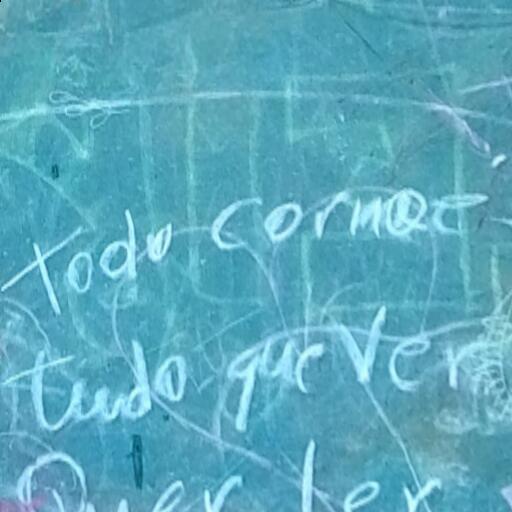 Todo cornoe
tudo que Ver
Quer ler